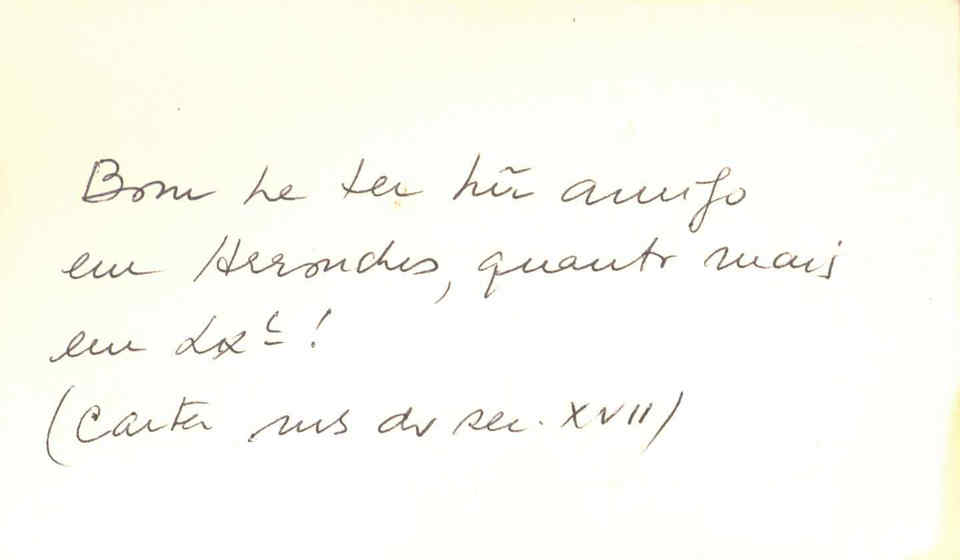 Bom he ter hũ amigo
em Arronches, quanto mais
em Lxª!
(Carta ms do sec. XVII)